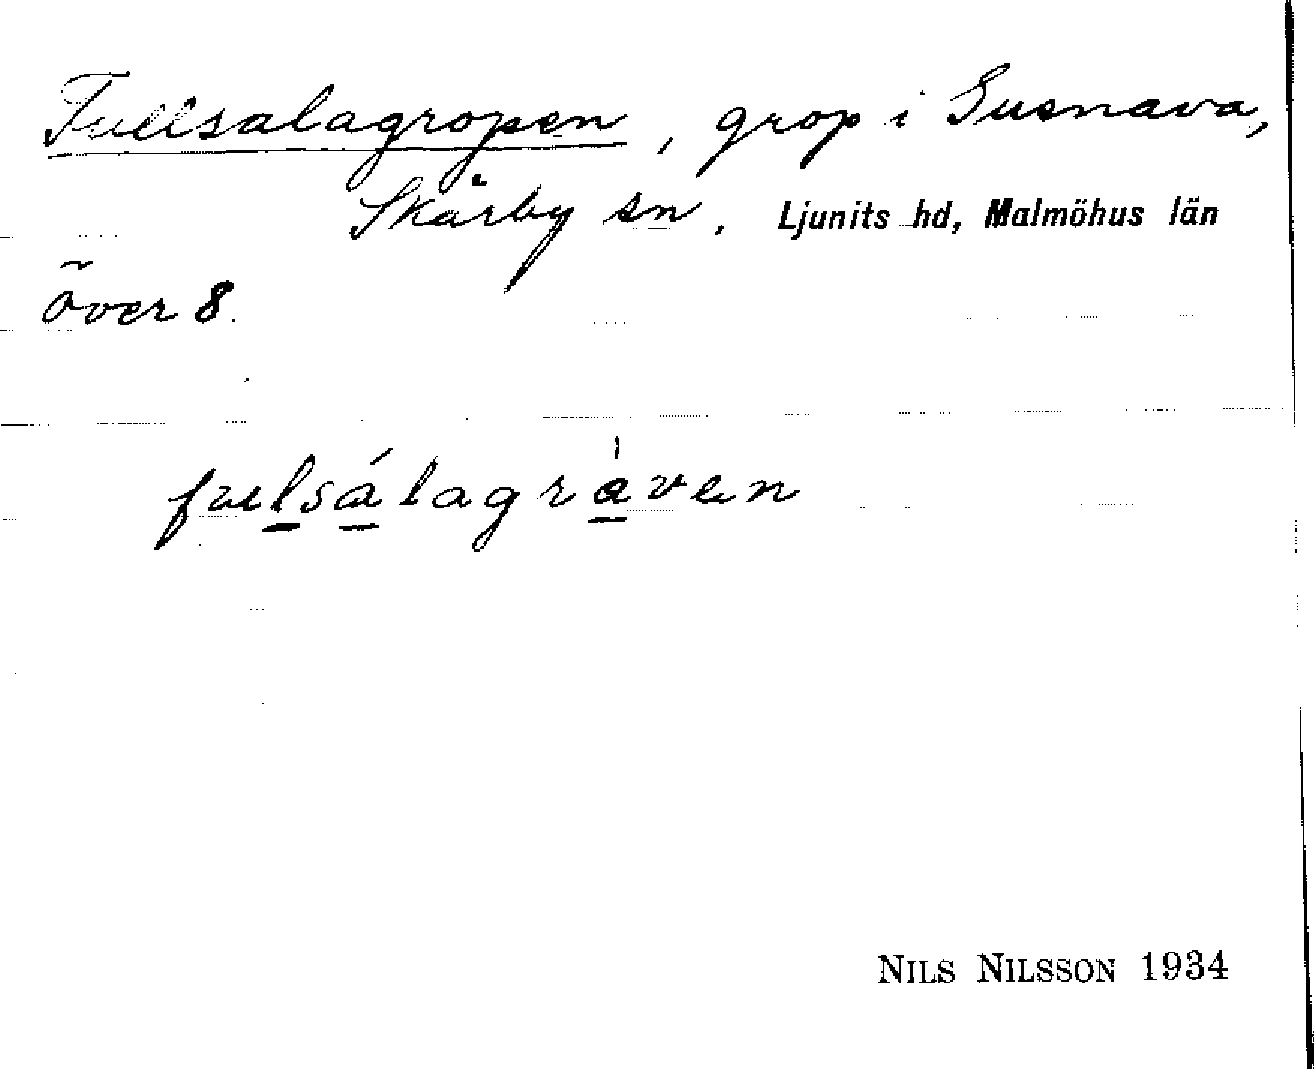 Fullsalagropen, grop i Susnava,
Skårby sn, Ljunits hd, Malmöhus län
över 8.
fuls̲á̲lagra̲ven
NILS NILSSON 1934